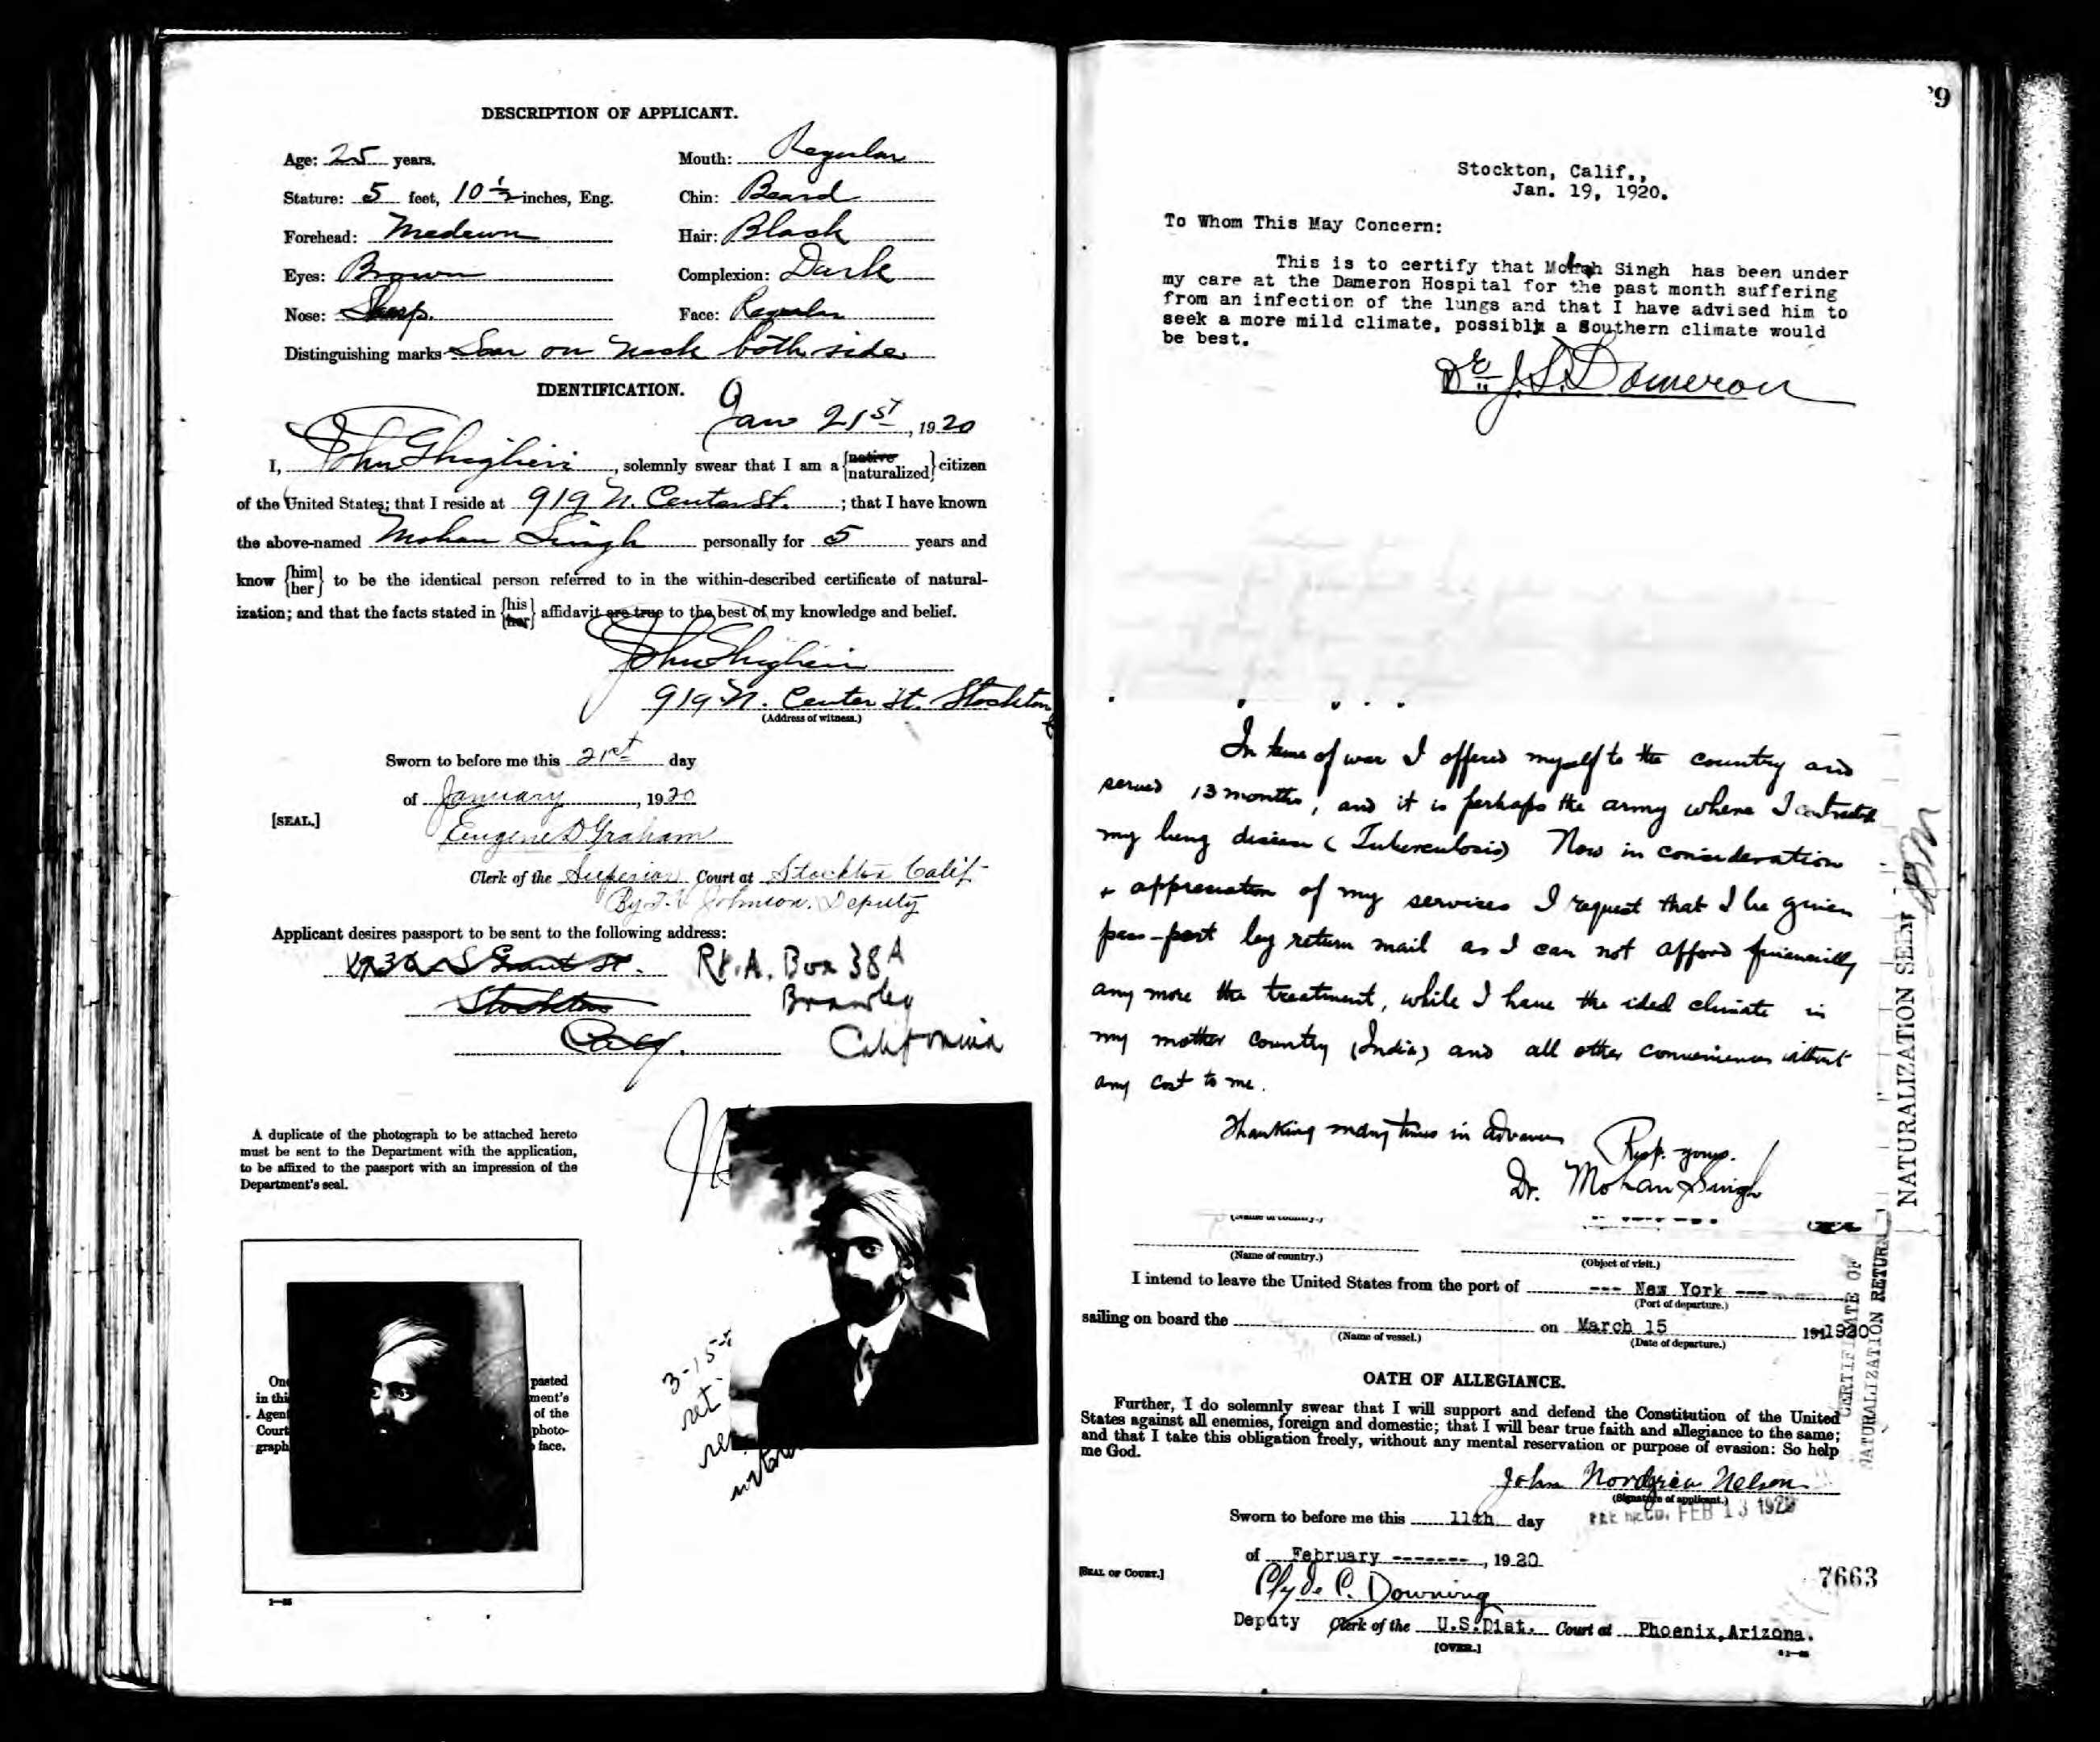 DESCRIPTION OF APPLICANT.
Age: 25 years.
Mouth: Regular
Stature: 5 feet, 10 ½ inches, Eng.
Chin: Beard
Forehead: Medeum
Hair: Black
Eyes: Brown
Complexion: Dark
Nose: Sharp.
Face: Regular
Distinguishing marks Scar on neck both side
IDENTIFICATION.
Jan 21st, 1920
I, John Ghiglieri, solemnly swear that I am a {native naturalized} citizen
of the United States; that I reside at 919 N. Center St. ; that I have known
the above-named Mohan Singh personally for 5 years and
know {him her} to be the identical person referred to in the within-described certificate of natural-
ization; and that the facts stated in {his her} affidavit are true to the best of my knowledge and belief.
John Ghiglieri
919 N. Center St. Stockton
(Address of witness.)
Sworn to before me this 21st day
of January, 1920
[SEAL.]
Eugene D Graham
Clerk of the Superior Court at Stockton Calif-
By Johnson, Deputy
Applicant desires passport to be sent to the following address:
S Grant St. Rt. A. Box 38A
Stockton Brawley
Calif. California
A duplicate of the photograph to be attached hereto
must be sent to the Department with the application,
to be affixed to the passport with an impression of the
Department's seal.
One pasted
in thi ment's
Agent of the
Court photo-
graph face.
3-15-
ret.
'9
Stockton, Calif.,
Jan. 19, 1920.
To Whom This May Concern:
This is to certify that Mohan Singh has been under
my care at the Dameron Hospital for the past month suffering
from an infection of the lungs and that I have advised him to
seek a more mild climate, possibly a Southern climate would
be best.
Dr. J.S. Dameron
In time of war I offered myself to the country and
served 13 months, and it is perhaps the army where I contracted
my lung disease (Tuberculosis) Now in consideration
+ appreciation of my services I request that I be given
pass-port by return mail as I can not afford financially
any more the treatment, while I have the ideal climate in
my mother country (India) and all other conveniences without
any cost to me.
Thanking many times in advance
Resp. yours.
Dr. Mohan Singh
(Name of country.)
(Name of country.) (Object of visit.)
I intend to leave the United States from the port of --- New York ---
(Port of departure.)
sailing on board the on March 15 1920
(Name of vessel.) (Date of departure.)
OATH OF ALLEGIANCE.
Further, I do solemnly swear that I will support and defend the Constitution of the United
States against all enemies, foreign and domestic; that I will bear true faith and allegiance to the same;
and that I take this obligation freely, without any mental reservation or purpose of evasion: So help
me God.
John Nelson
(Signature of applicant.)
Sworn to before me this 11th day
FEB 13 1920
of February --------, 1920
[SEAL OF COURT.]
Clyde C. Downing
7663
Deputy Clerk of the U.S.Dist. Court at Phoenix, Arizona.
[OVER.]
NATURALIZATION SENT
CERTIFICATE OF
NATURALIZATION RETURN